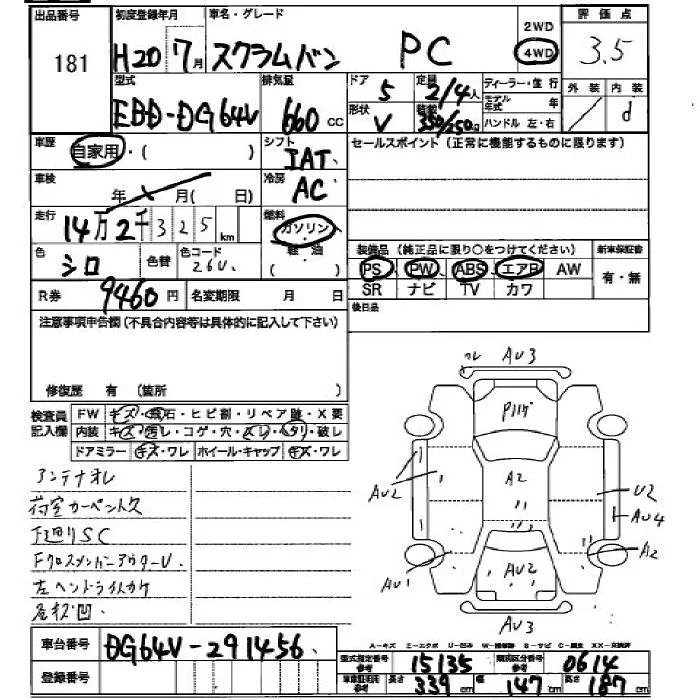 出品番号 初度登録年月 車名・グレード 2WD 評価点
181 H20 7月 スクラムバン PC 4WD 3.5
型式 排気量 ドア 定員 ディーラー・並行 外装 内装
EBD-DG64V 660cc 5 2/4人 モデル年式 年 d
形状 V 積載 350/250kg ハンドル 左・右
車歴 自家用・( ) シフト IAT セールスポイント(正常に機能するものに限ります)
車検 年 月( 日) 冷房 AC
走行 14万2千325km 燃料 ガソリン・軽油
色 シロ 色替 色コード 26U 装備品(純正品に限り○をつけてください) 新車保証書
PS PW ABS エアB AW 有・無
R券 9460円 名変期限 月 日 SR ナビ TV カワ
注意事項申告欄(不具合内容等は具体的に記入して下さい) 後日品
修復歴 有 (箇所 )
検査員記入欄 FW キズ・飛石・ヒビ割・リペア跡・X要
内装 キズ・汚レ・コゲ・穴・スレ・ヘタリ・破レ
ドアミラー キズ・ワレ ホイール・キャップ キズ・ワレ
アンテナオレ
荷室カーペント欠
下廻りSC
FクロスメンバーアウターU
左ヘンドライトカケ
各キズ凹
AU3
A2
AU2
U2
AU4
AU1
AU2
A2
AU3
A-キズ E-エクボ U-凹み W-補修跡 S-サビ C-腐食 XX-交換済
車台番号 DG64V-291456
登録番号
型式指定番号 参考 15135 類別区分番号 参考 0614
車車証明用 参考 長さ 339cm 幅 147cm 高さ 187cm